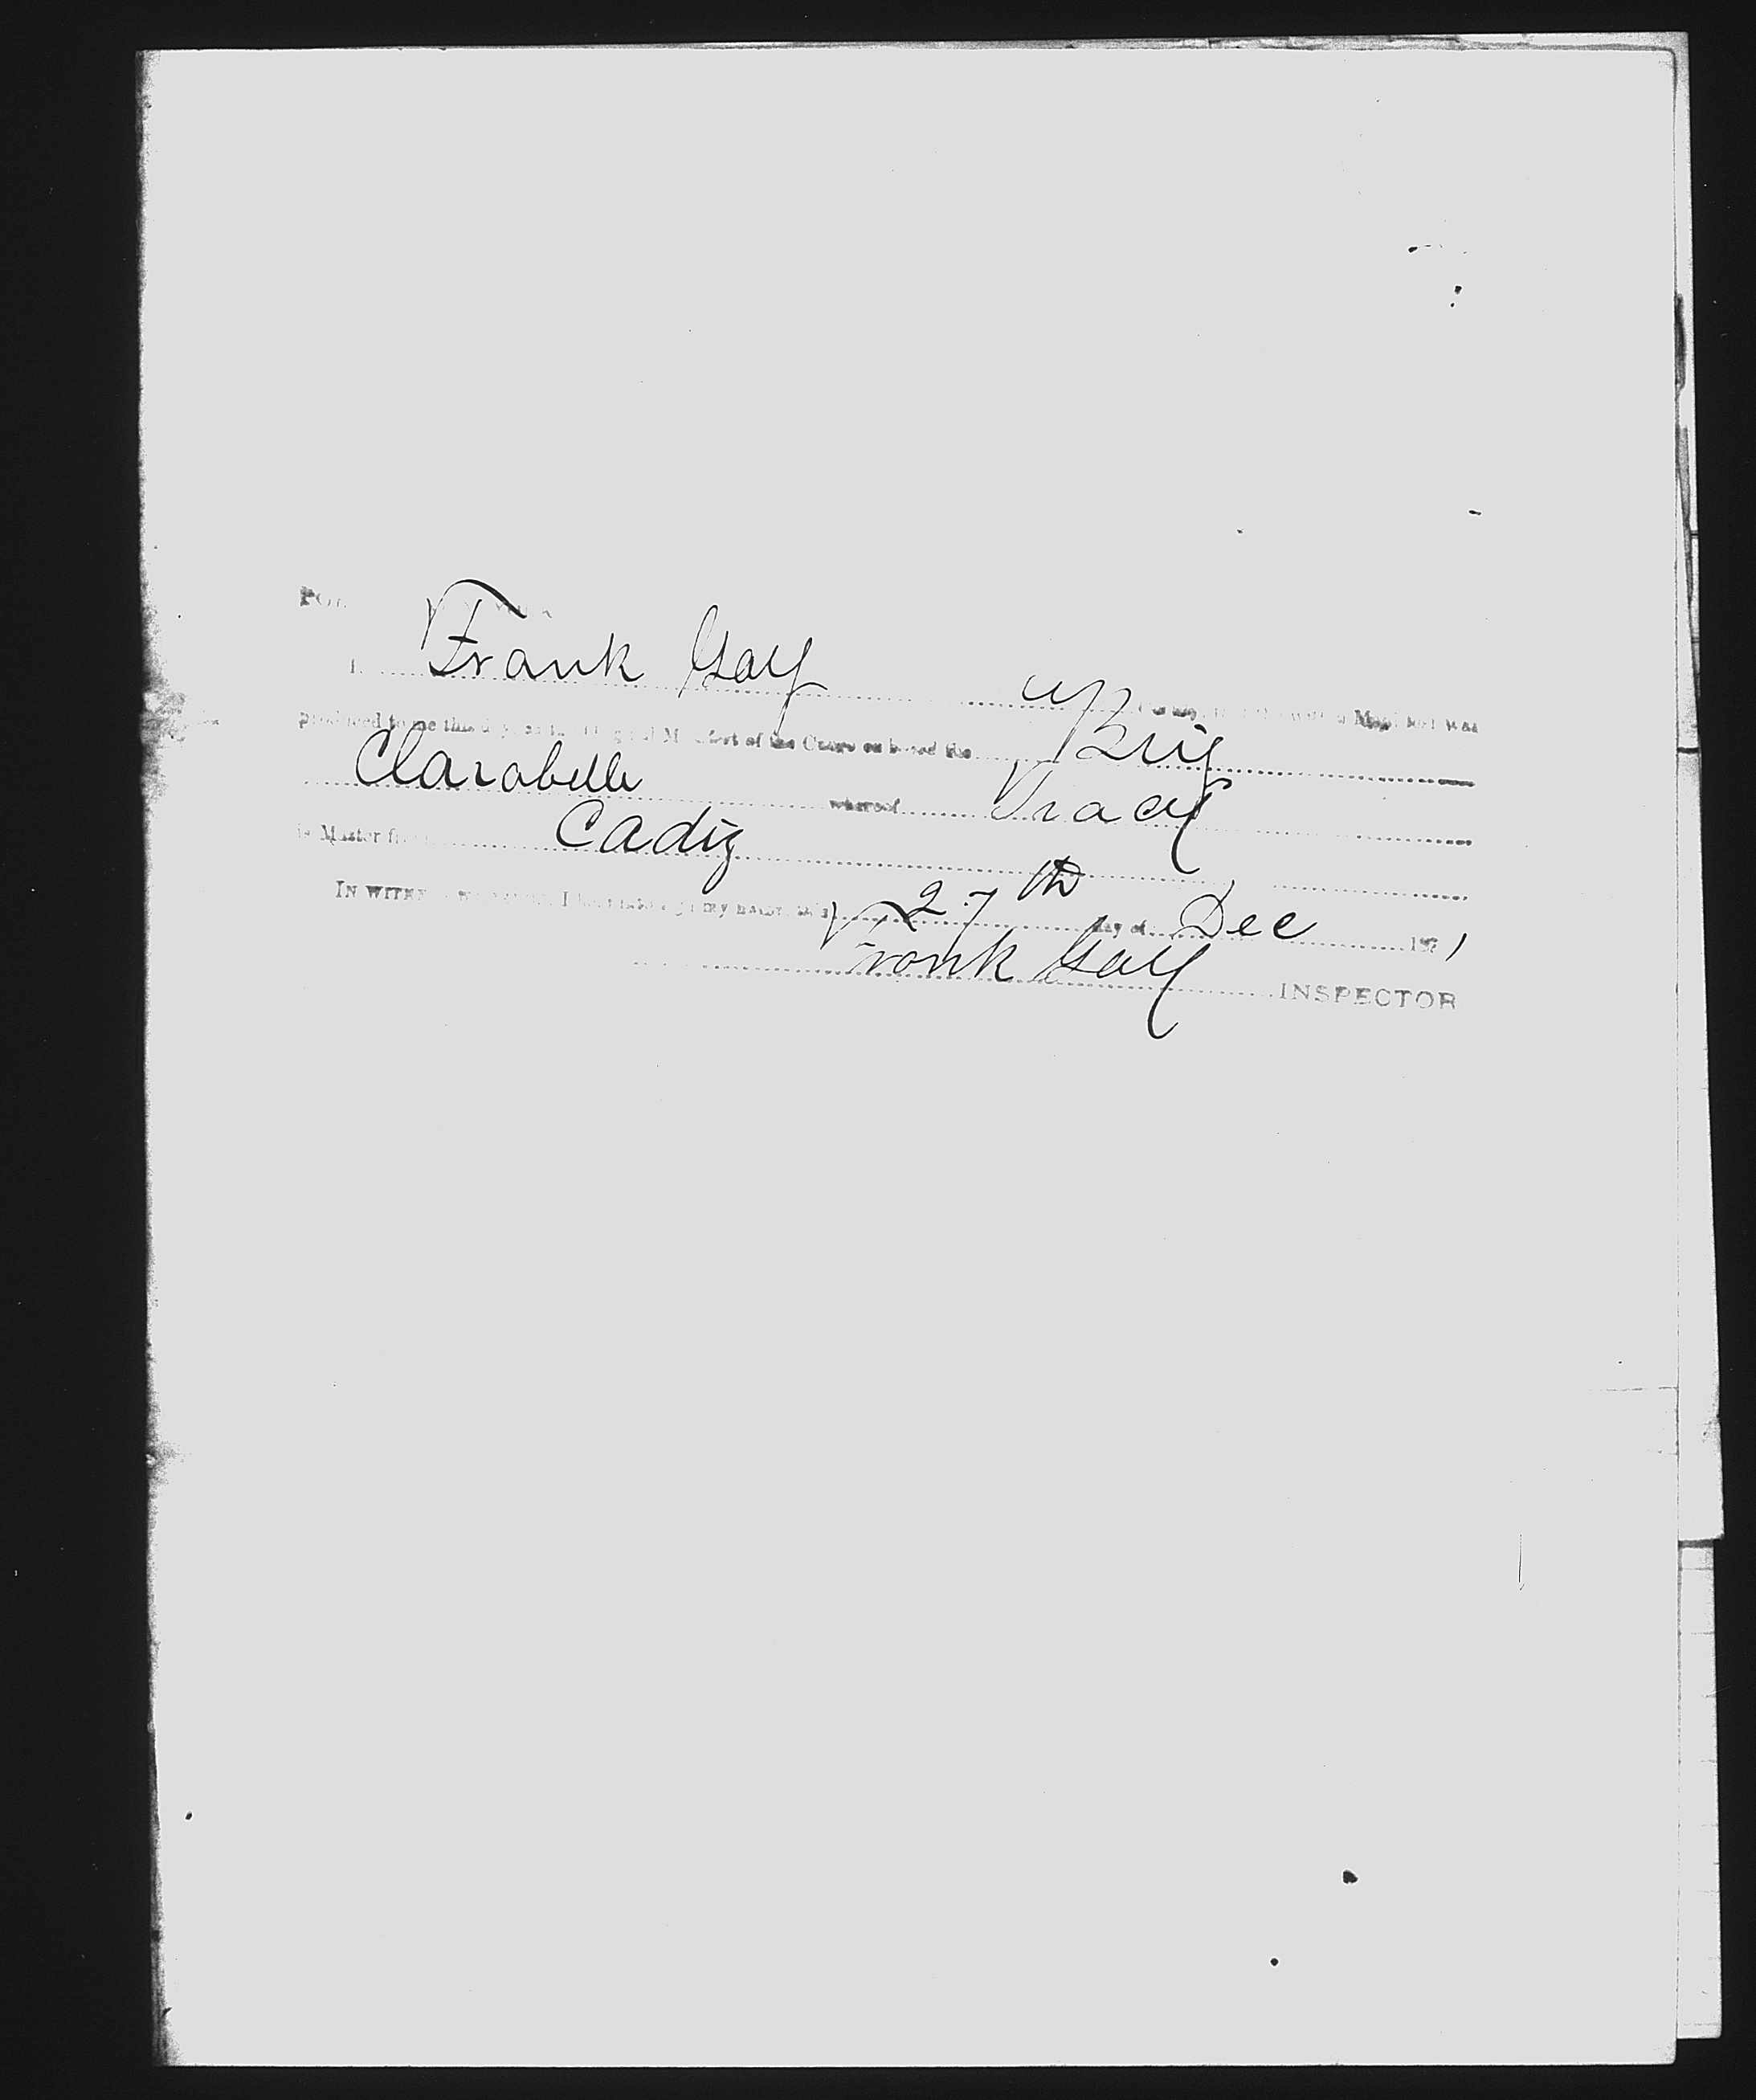 I, Frank Gay Manifest was
produced to me this day as the Original Manifest of the Cargo on board the Brig
Clarabelle whereof Tracy
is Master from Cadiz
IN WITNESS WHEREOF, I my name, this 27th day of Dec 1871
Frank Gay INSPECTOR